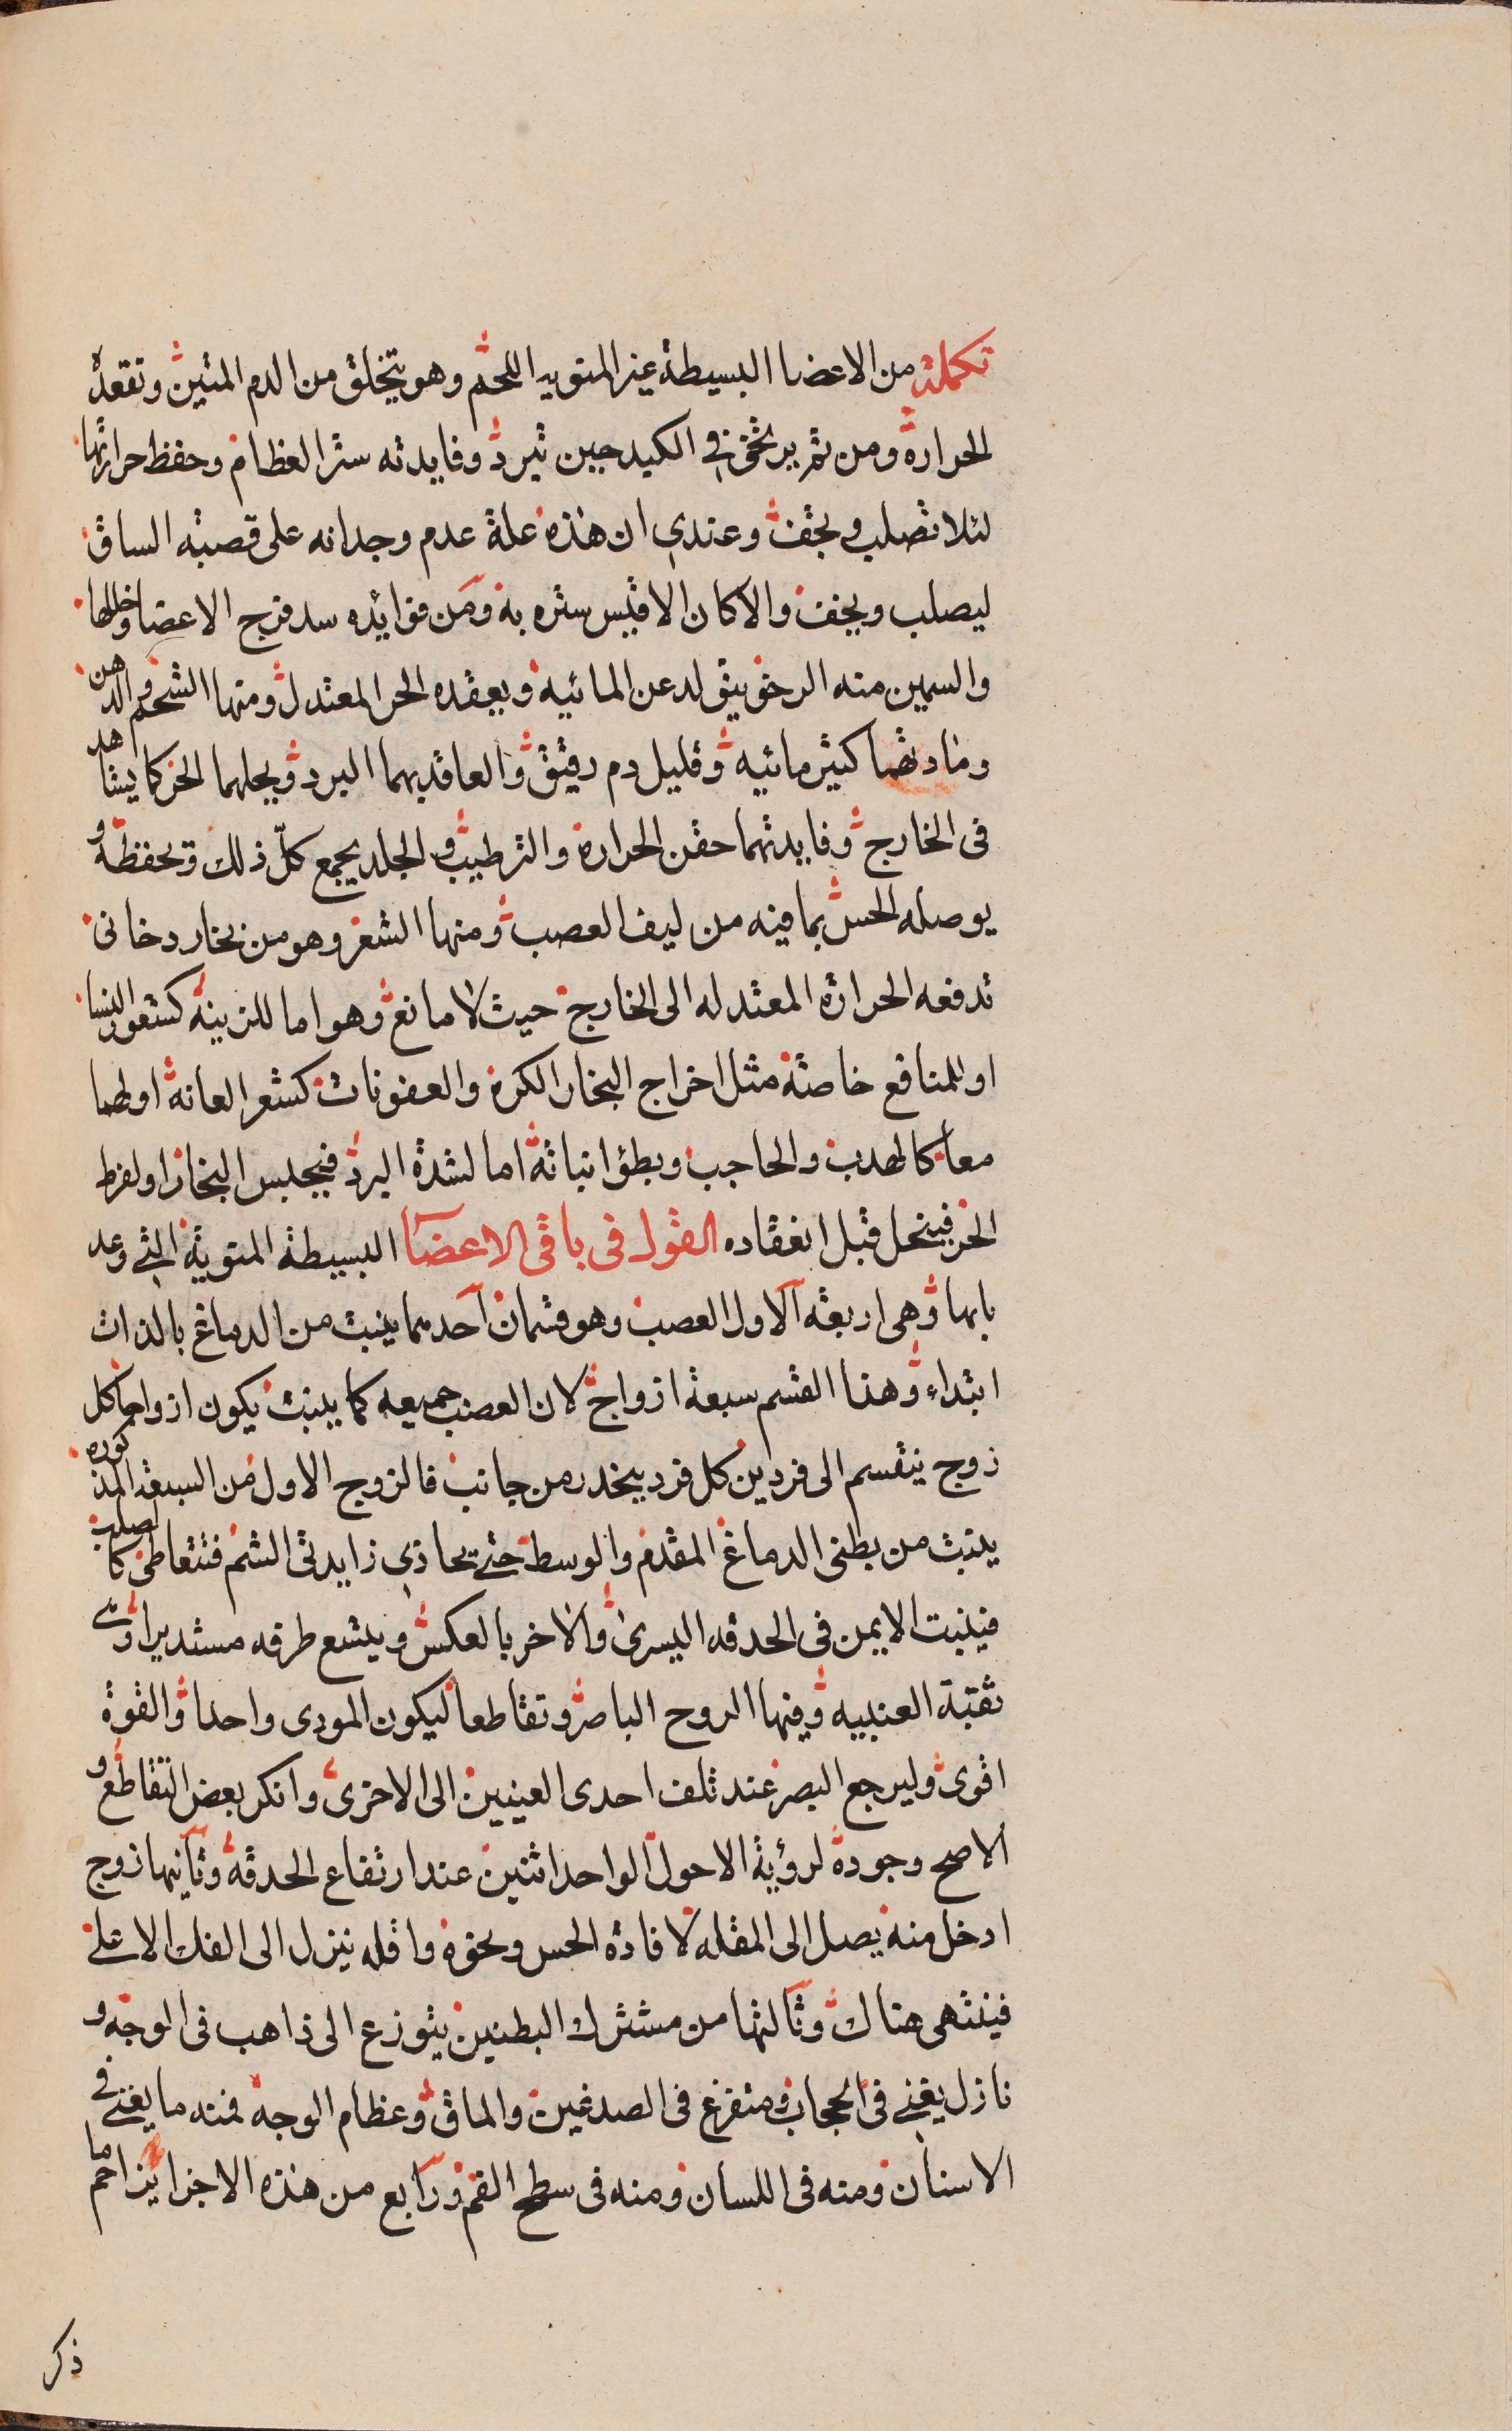 تكملة من الاعضا البسيطة غير المنوية اللحم وهو يتخلق من الدم المتين وتعقده
الحرارة ومن ثم يرتخى في الكبد حين تبرد وفايدته ستر العظام وحفظ حرارتها
لئلا تصلب وتجف وعندي ان هذه علة عدم وجدانه على قصبة الساق
ليصلب ويجف والا كان الاقيس ستره به ومن فوائده سد فرج الاعضا وخللها
والسمين منه الرخو يتولد عن المائية ويعقده الحر المعتدل ومنها الشحم والدهن
ومادتهما كثير مائيه وقليل دم رقيق والعاقد لهما البرد ويحلهما الحر كما يشاهد
في الخارج وفايدتهما حقن الحرارة والترطيب والجلد يجمع كلّ ذلك ويحفظه و
يوصله الحس بما فيه من ليف العصب ومنها الشعر وهو من بخار دخانى
تدفعه الحرارة المعتدله الى الخارج حيث لا مانع وهو اما للزينة كشعور النسا
او للمنافع خاصة مثل اخراج البخار الكره والعفونات كشعر العانة او لهما
معا كالهدب والحاجب وبطؤ انباته اما لشدة البرد فيحبس البخار او لفرط
الحر فينحل قبل انعقاده القول في باقي الاعضا البسيطة المنوية التي وعد
بابها وهى اربعة الاول العصب وهو قسمان احدهما ينبت من الدماغ بالذات
ابتداء وهذا القسم سبعة ازواج لان العصب جميعه كما ينبت يكون ازواجا كل
زوج ينقسم الى فردين كل فرد ينحدر من جانب فالزوج الاول من السبعة المذكوره
ينبت من بطنى الدماغ المقدم والوسط حتى يحاذي زايدتى الشم فتتقاطع كالصليب
فينبت الايمن في الحدقه اليسرى والاخر بالعكس ويتسع طرفه مستديرا وسمى
ثقبة العنبيه وفيها الروح الباصر وتقاطعا ليكون المودى واحدا والقوة
اقوى وليرجع البصر عند تلف احدى العينين الى الاخرى وانكر بعض التقاطع و
الاصح وجوده لرؤية الاحول الواحد اثنين عند ارتفاع الحدقة وثانيها زوج
ادخل منه يصل الى المقله لافادة الحس ونحوه واقله ينزل الى الفك الاعلى
فينتهى هناك وثالثها من مشترك البطنين يتوزع الى ذاهب في الوجه و
نازل يغنى في الحجاب ومتفرغ في الصدغين والماق وعظام الوجه فمنه ما يفنى في
الاسنان ومنه فى اللسان ومنه فى سطح الفم ورابع من هذه الاجزا يزاحم ما
ذكر